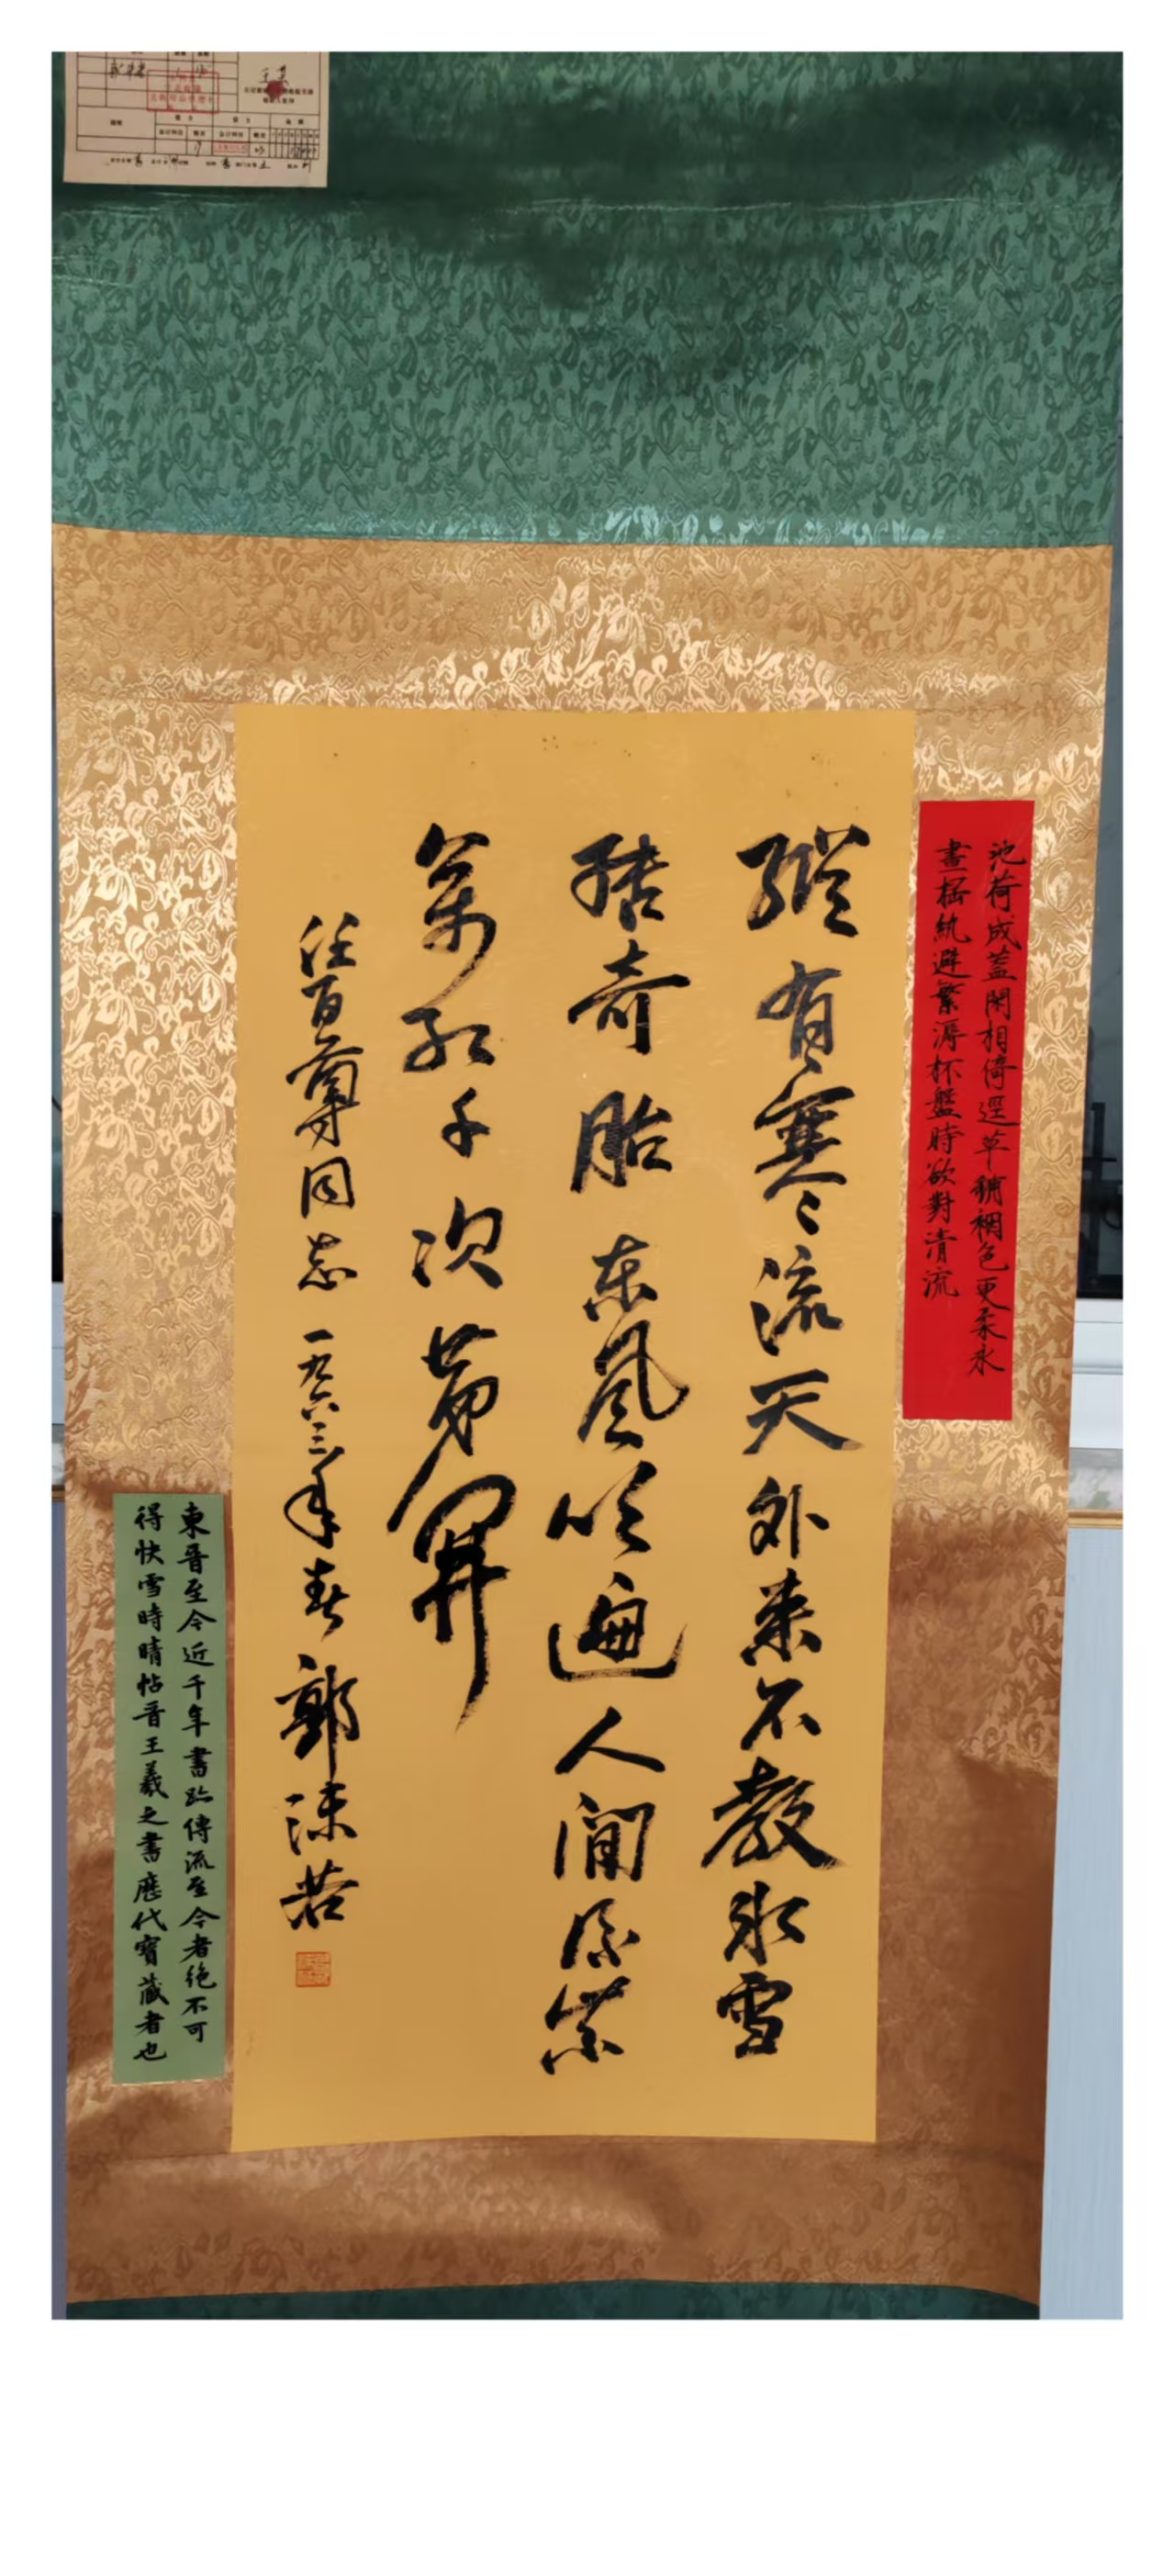 池荷成蓋閑相倚逕草鋪裀色更柔永
晝搖紈避繁溽杯盤時欲對清流
縱有寒流天外來不教冰雪
結奇胎东風吹遍人间後紫
萬紅千次苐開
任百尊同志 一九六三年春 郭沫若
東晋至今近千年書跡傳流至今者绝不可
得快雪時晴帖晋王羲之書歷代寶藏者也